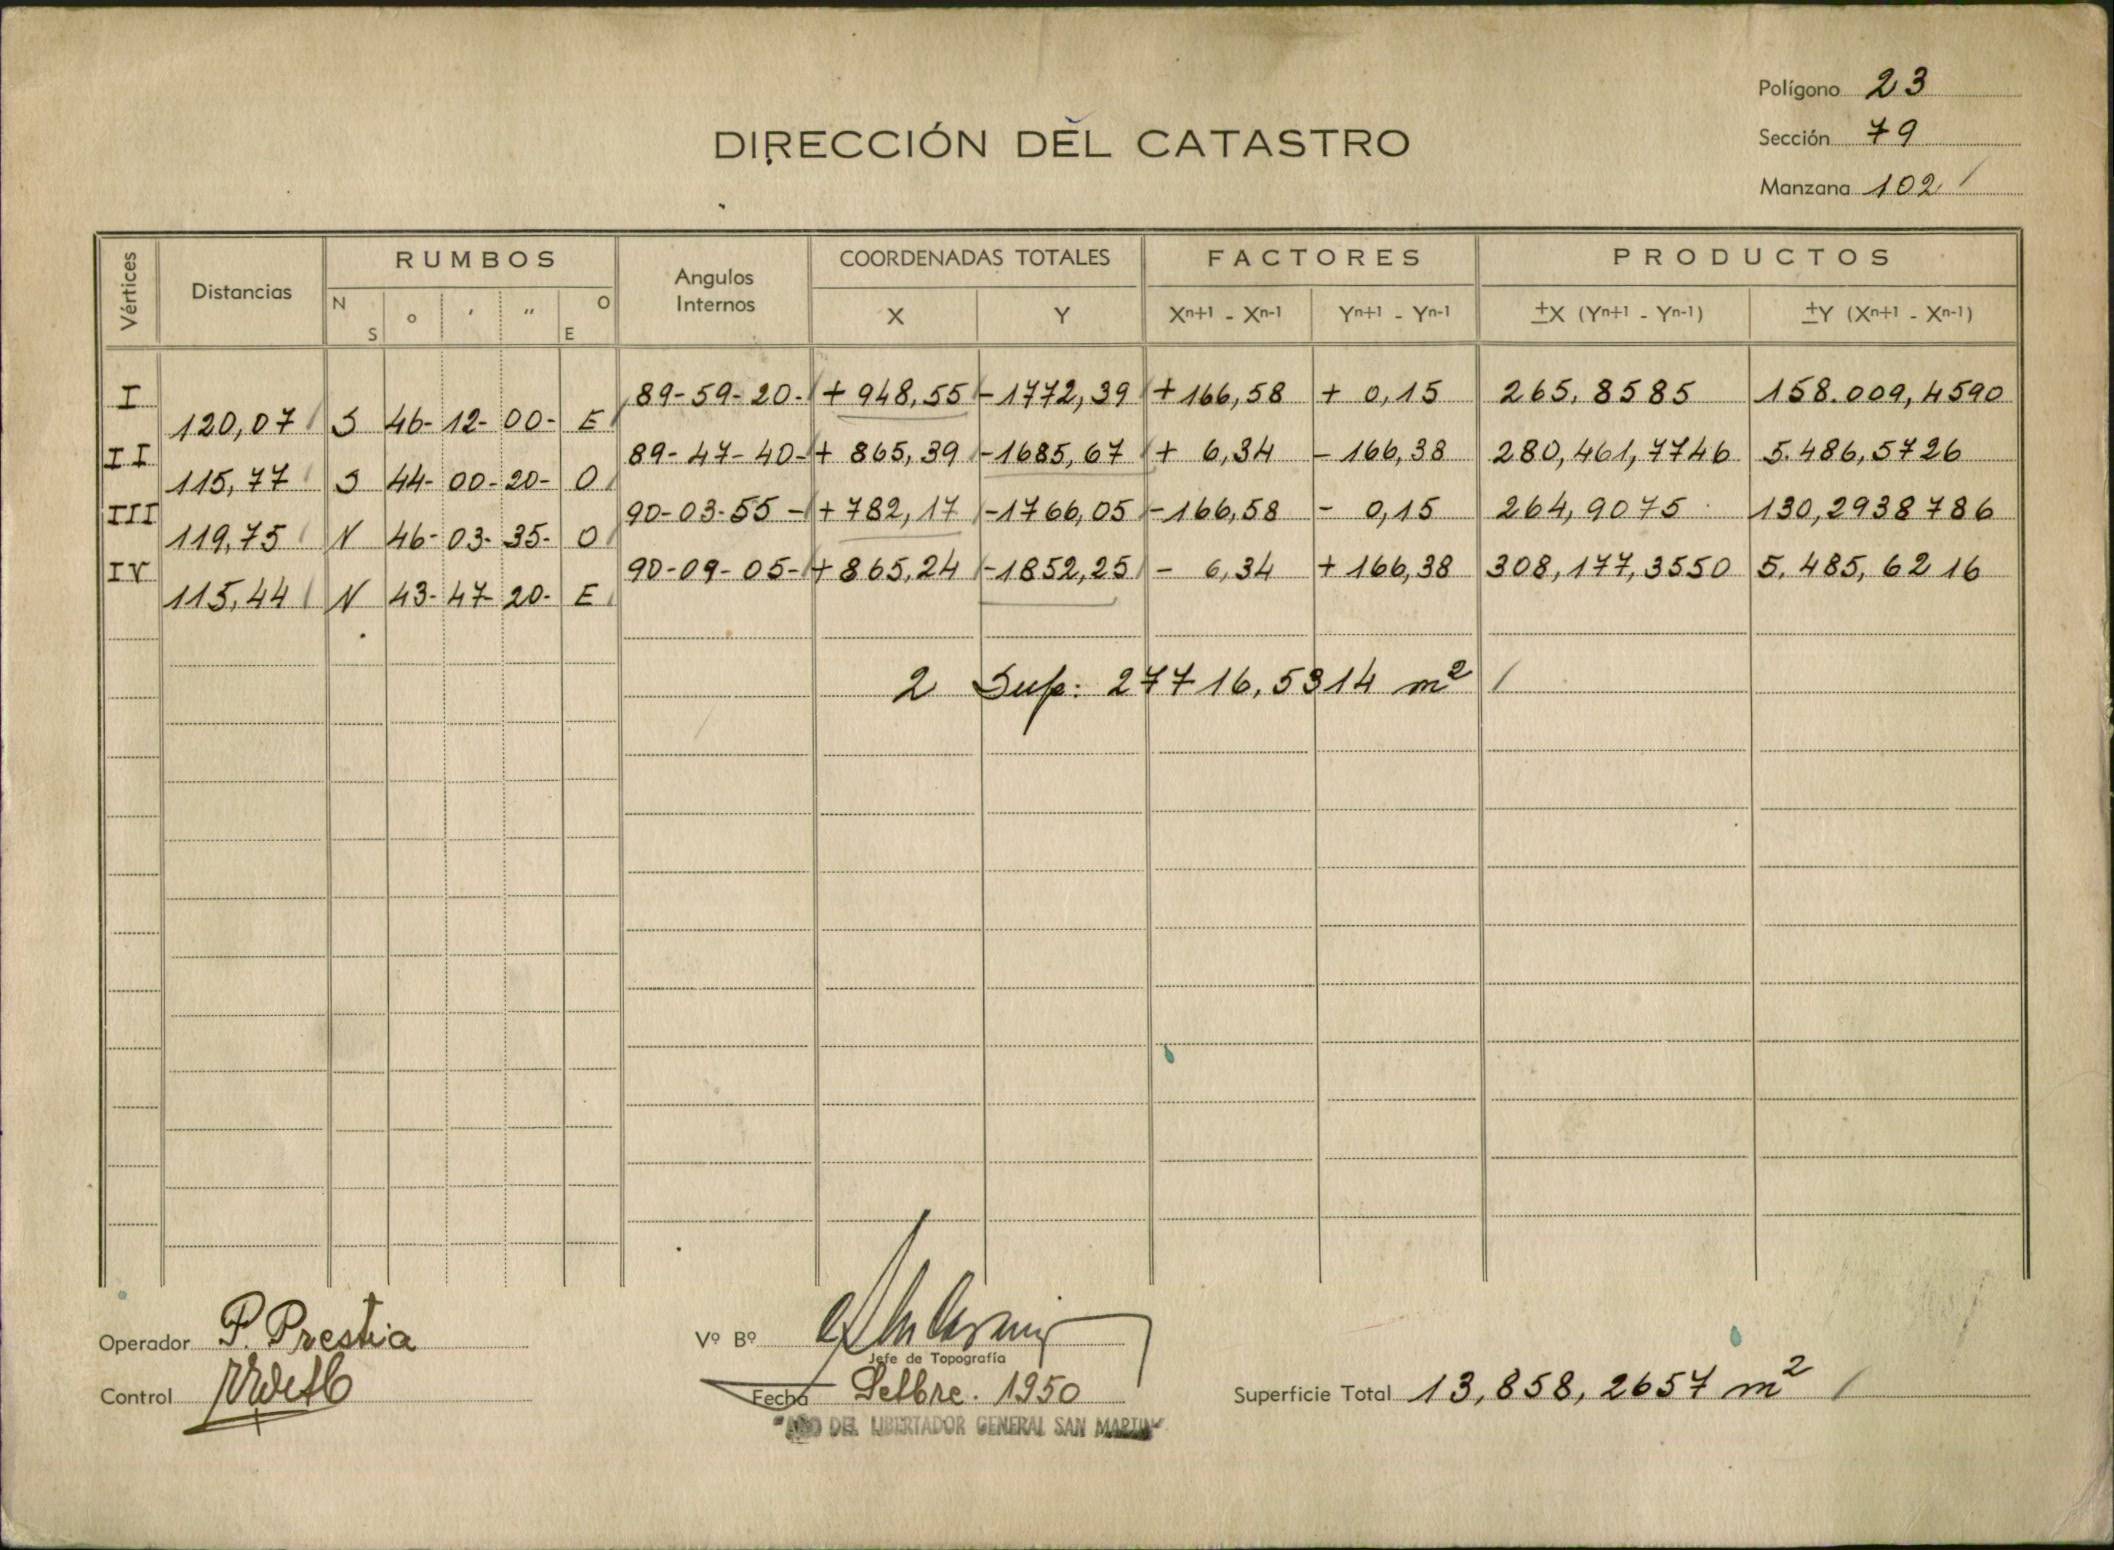 Polígono 23
DIRECCIÓN DEL CATASTRO
Sección 79
Manzana 102
Vértices Distancias RUMBOS Angulos Internos COORDENADAS TOTALES FACTORES PRODUCTOS
N S ° ' " O E X Y Xn+1 - Xn-1 Yn+1 - Yn-1 ±X (Yn+1 - Yn-1) ±Y (Xn+1 - Xn-1)
I 89-59-20- +948,55 -1772,39 +166,58 + 0,15 265,8585 158.009,4590
120,07 S 46- 12- 00- E
II 89-47-40- + 865,39 -1685,67 + 6,34 - 166,38 280,461,7746 5.486,5726
115,77 S 44- 00- 20- O
III 90-03-55- +782,17 -1766,05 -166,58 - 0,15 264,9075 130,2938786
119,75 N 46- 03- 35- O
IV 90-09-05- +865,24 -1852,25 - 6,34 +166,38 308,177,3550 5.485,6216
115,44 N 43- 47- 20- E
2 Sup: 27716,5314 m²
Operador P. Prestia
Vº Bº
Jefe de Topografía
Control
Fecha Setbre. 1950
Superficie Total 13,858,2657 m²
"AÑO DEL LIBERTADOR GENERAL SAN MARTIN"